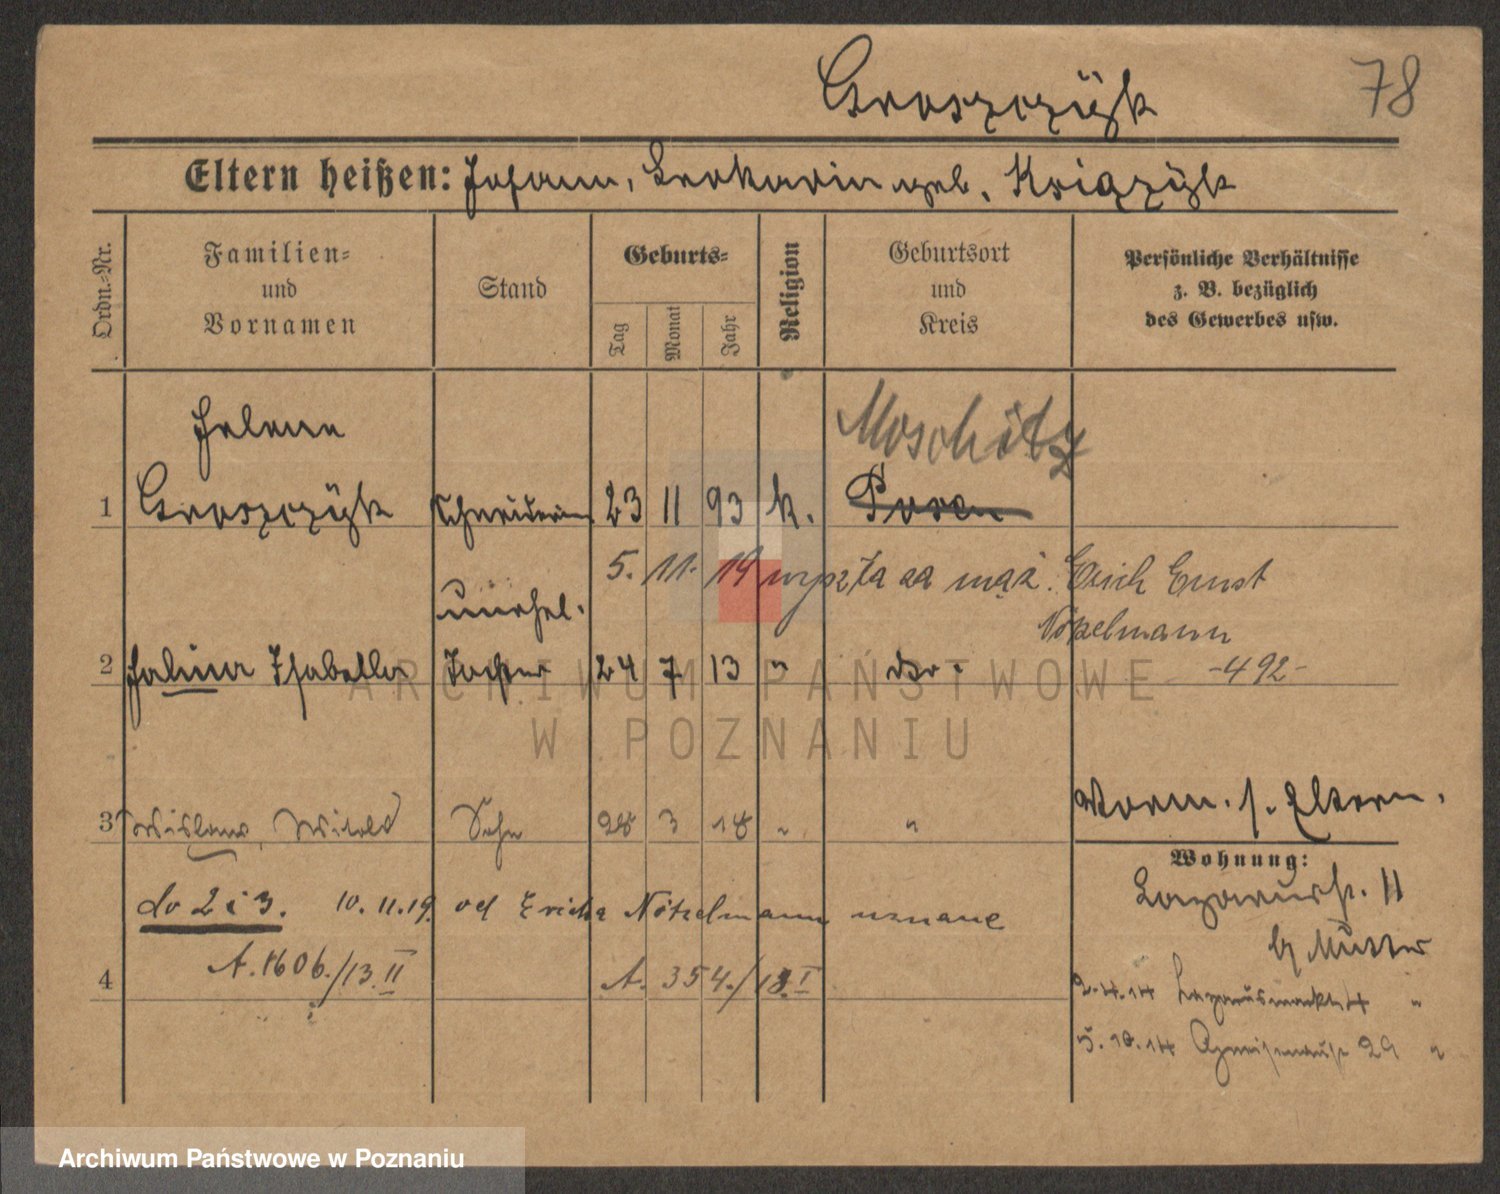 Groszczyk
78
Eltern heißen: Johann, geb. Książyk
Ordn.-Nr.
Familien- und Vornamen
Stand
Geburts-
Tag
Monat
Jahr
Religion
Geburtsort und Kreis
Persönliche Verhältnisse z. B. bezüglich des Gewerbes usw.
Helene
Moschütz
1 Groszczyk Schneiderin 23 11 93 k. Posen
5. 11. 19 wyszła za mąż. Erich Ernst
Nötzelmann
unehel.
2 Halina Isabella Tochter 24 7 13 " do.
-492-
3 Wislaw, Witold Sohn 28 3 18 " "
Vorm. s. Eltern.
Wohnung:
do 2 i 3. 10. 11. 19. od Ericha Nötzelmann uznane
Lazarusstr. 11
b/ Mutter
A. 1606./13. II
A. 354./18. I
4
2.4.14 Lazarusmarkt 4 "
5.10.14 Gneisenaustr 29 "
ARCHIWUM PAŃSTWOWE
W POZNANIU
Archiwum Państwowe w Poznaniu